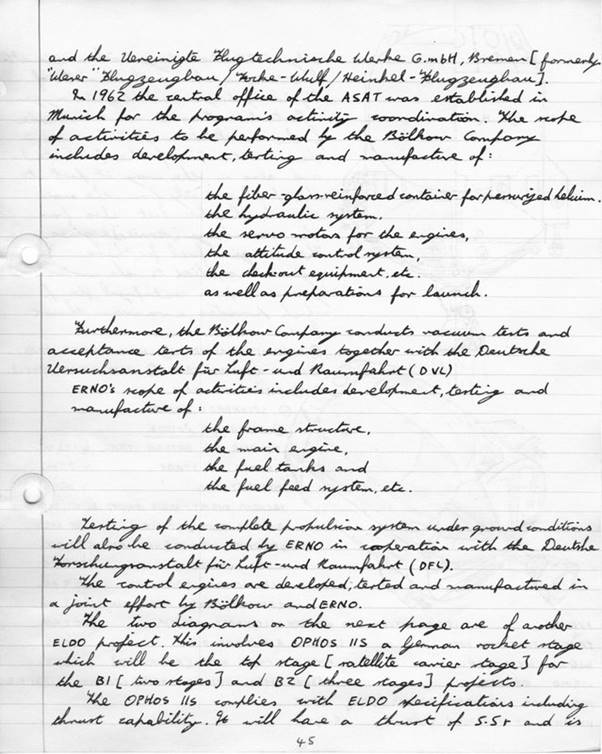 and the Vereinigte Flugtechnische Werke G.mbH, Bremen [formerly
"Weser" Flugzeugbau / Focke-Wulf / Heinkel-Flugzeugbau].
In 1962 the central office of the ASAT was established in
Munich for the program's activity coordination. The scope
of activities to be performed by the Bölkow Company
includes development, testing and manufacture of:
the fiber-glass-reinforced container for pressurized helium.
the hydraulic system.
the servo motors for the engines,
the attitude control system,
the check-out equipment, etc.
as well as preparations for launch.
Furthermore, the Bölkow Company conducts vacuum tests and
acceptance tests of the engines together with the Deutsche
Versuchsanstalt für Luft- und Raumfahrt (DVL)
ERNO's scope of activities includes development, testing and
manufacture of:
the frame structure,
the main engine,
the fuel tanks and
the fuel feed system, etc.
Testing of the complete propulsion system under ground conditions
will also be conducted by ERNO in cooperation with the Deutshe
Forschungsanstalt für Luft-und Raumfahrt (DFL).
The control engines are developed, tested and manufactured in
a joint effort by Bölkow and ERNO.
The two diagrams on the next page are of another
ELDO project. This involves OPHOS IIS a German rocket stage
which will be the top stage [satellite carrier stage] for
the B1 [two stages] and B2 [three stages] projects.
The OPHOS IIS complies with ELDO specifications including
thrust capability. It will have a thrust of 5.5t and is
45